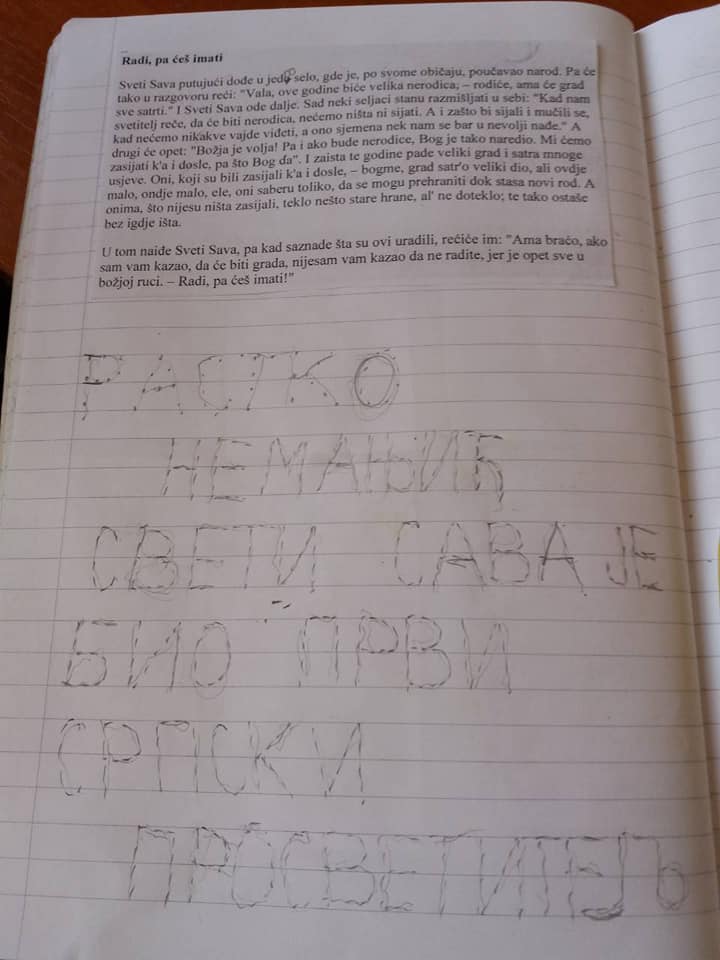 Radi, pa ćeš imati
Sveti Sava putujući dođe u jedno selo, gde je, po svome običaju, poučavao narod. Pa će
tako u razgovoru reći: "Vala, ove godine biće velika nerodica, – rodiće, ama će grad
sve satrti." I Sveti Sava ode dalje. Sad neki seljaci stanu razmišljati u sebi: "Kad nam
svetitelj reče, da će biti nerodica, nećemo ništa ni sijati. A i zašto bi sijali i mučili se,
kad nećemo nikakve vajde videti, a ono sjemena nek nam se bar u nevolji nađe." A
drugi će opet: "Božja je volja! Pa i ako bude nerodice, Bog je tako naredio. Mi ćemo
zasijati k'a i dosle, pa što Bog da". I zaista te godine pade veliki grad i satra mnoge
usjeve. Oni, koji su bili zasijali k'a i dosle, – bogme, grad satr'o veliki dio, ali ovdje
malo, ondje malo, ele, oni saberu toliko, da se mogu prehraniti dok stasa novi rod. A
onima, što nijesu ništa zasijali, teklo nešto stare hrane, al' ne doteklo; te tako ostaše
bez igdje išta.
U tom naiđe Sveti Sava, pa kad saznade šta su ovi uradili, rećiće im: "Ama braćo, ako
sam vam kazao, da će biti grada, nijesam vam kazao da ne radite, jer je opet sve u
božjoj ruci. – Radi, pa ćeš imati!"
РАСТКО
НЕМАЊИЋ
СВЕТИ САВА ЈЕ
БИО ПРВИ
СРПСКИ
ПРОСВЕТИТЕЉ